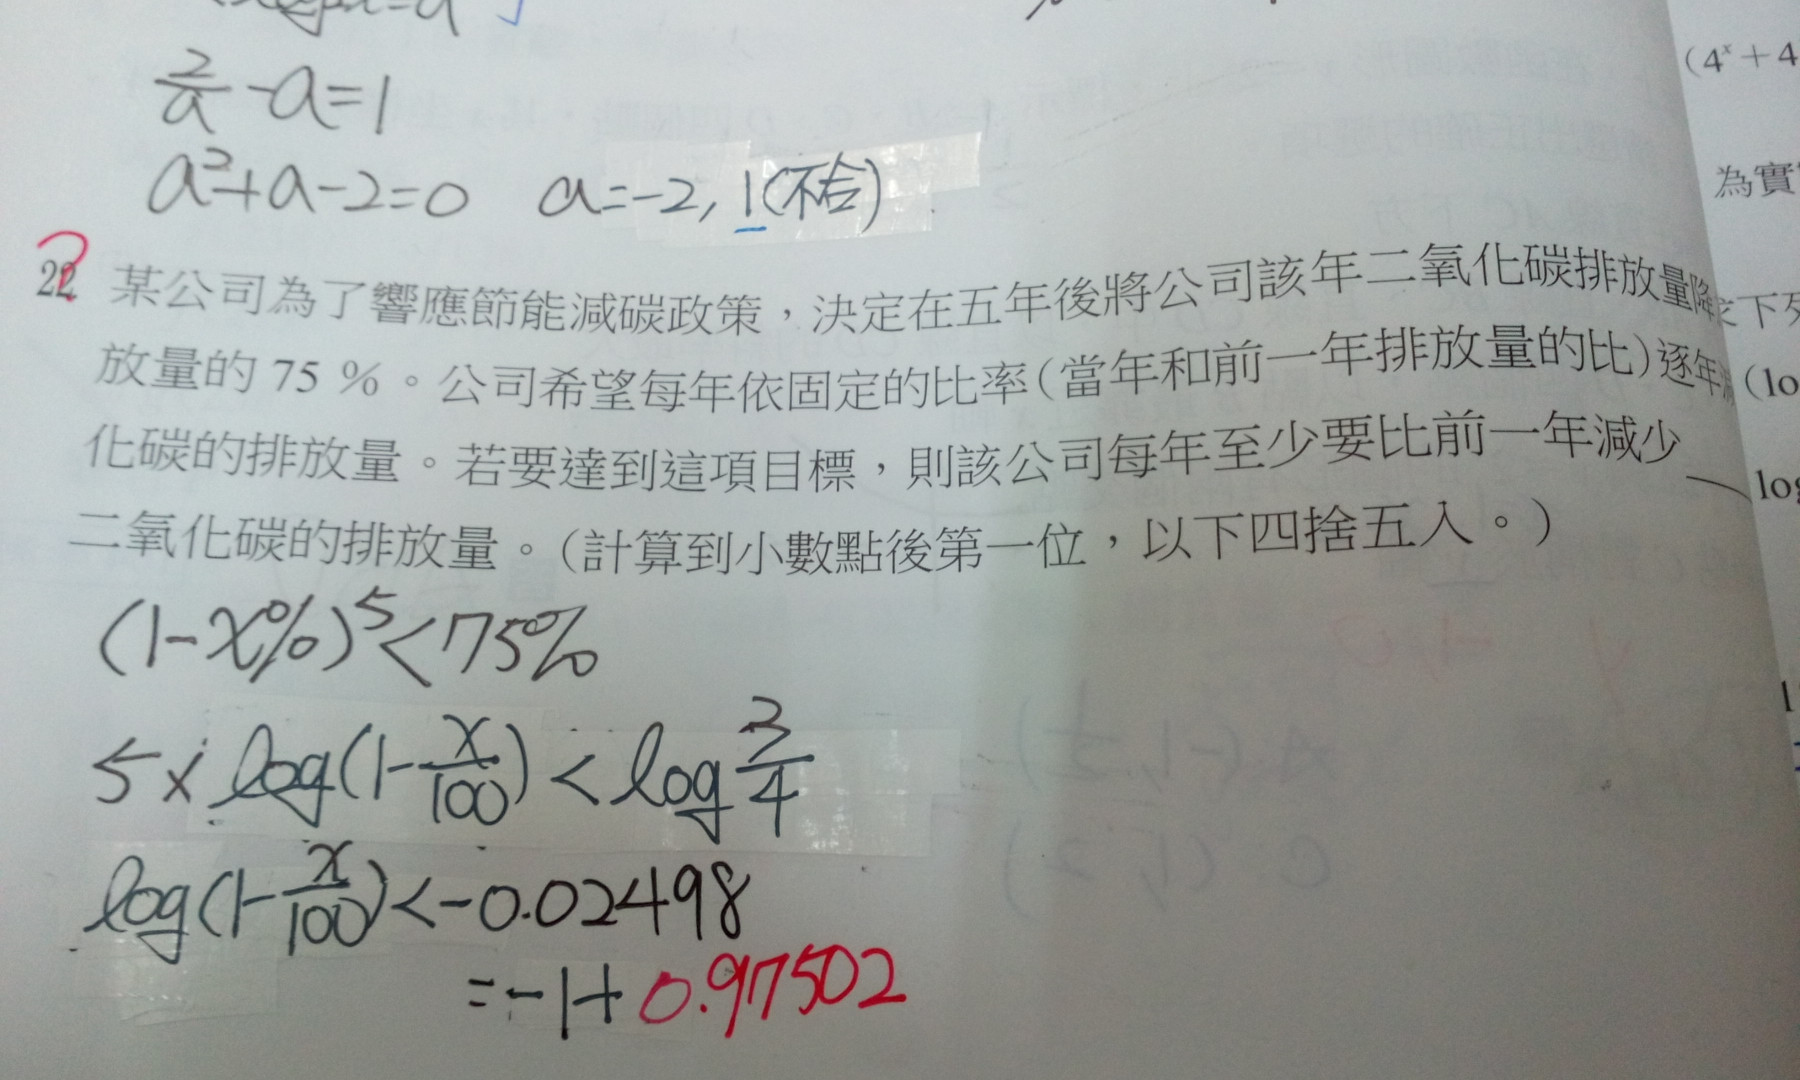 2/a - a = 1
a²+a-2=0 a=-2, 1(不合)
22 某公司為了響應節能減碳政策，決定在五年後將公司該年二氧化碳排放量降
放量的 75 %。公司希望每年依固定的比率(當年和前一年排放量的比)逐年
化碳的排放量。若要達到這項目標，則該公司每年至少要比前一年減少
二氧化碳的排放量。(計算到小數點後第一位，以下四捨五入。)
(1-x%)⁵<75%
5×log(1-x/100)<log 3/4
log(1-x/100)<-0.02498
=-1+0.97502
(4ˣ+4
為實
下列
(lo
log